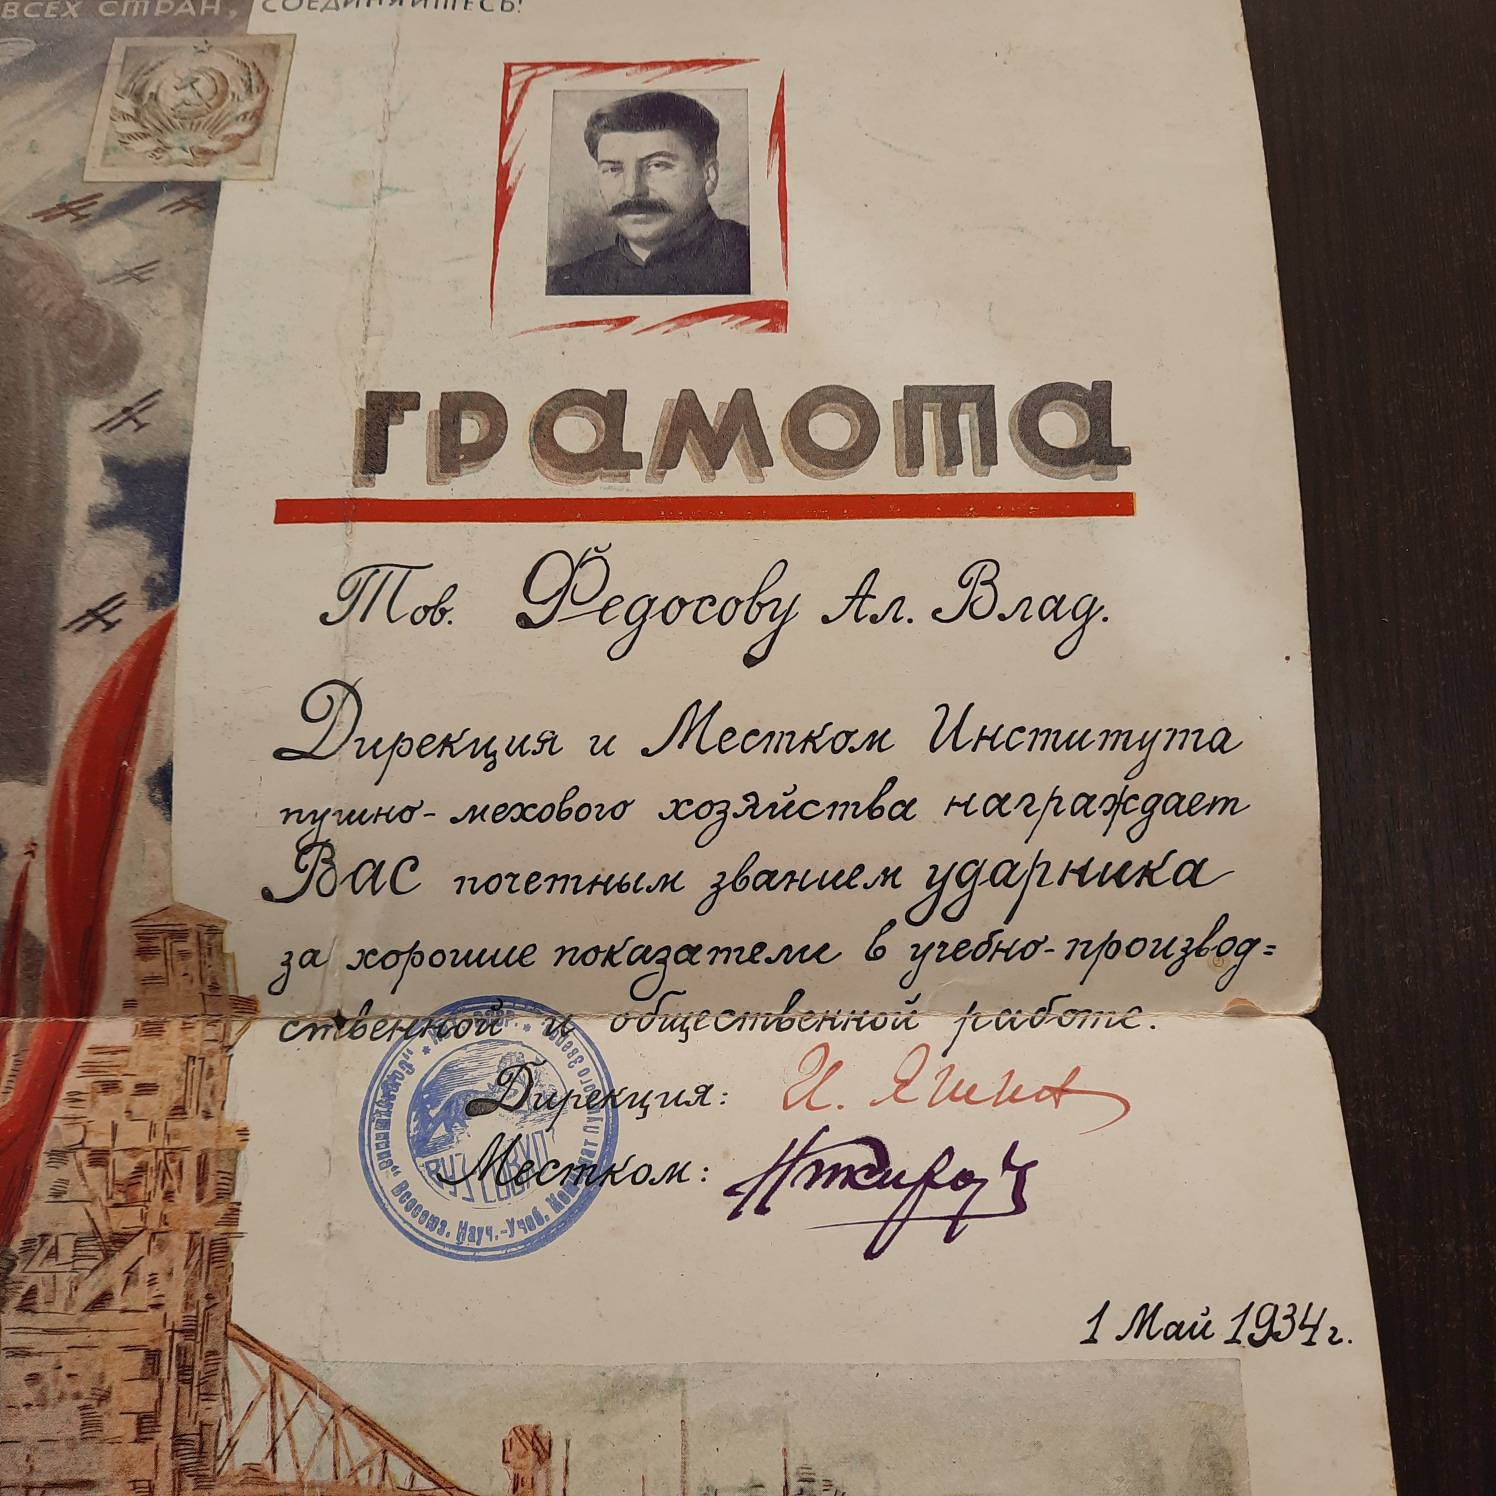 ВСЕХ СТРАН, СОЕДИНЯЙТЕСЬ!
ГРАМОТА
Тов. Федосову Ал. Влад.
Дирекция и Местком Института
пушно-мехового хозяйства награждает
ВАС почетным званием ударника
за хорошие показатели в учебно-производ=
ственной и общественной работе.
Дирекция: И. Яшин
Местком:
Всесоюз. Науч.-Учеб. Комбинат Пушного
ВУЗ
1 Май 1934 г.